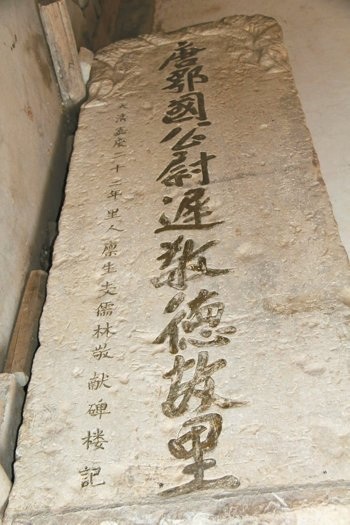 唐鄂國公尉遲敬德故里
大清嘉慶二十二年里人廪生支儒林敬献碑楼記